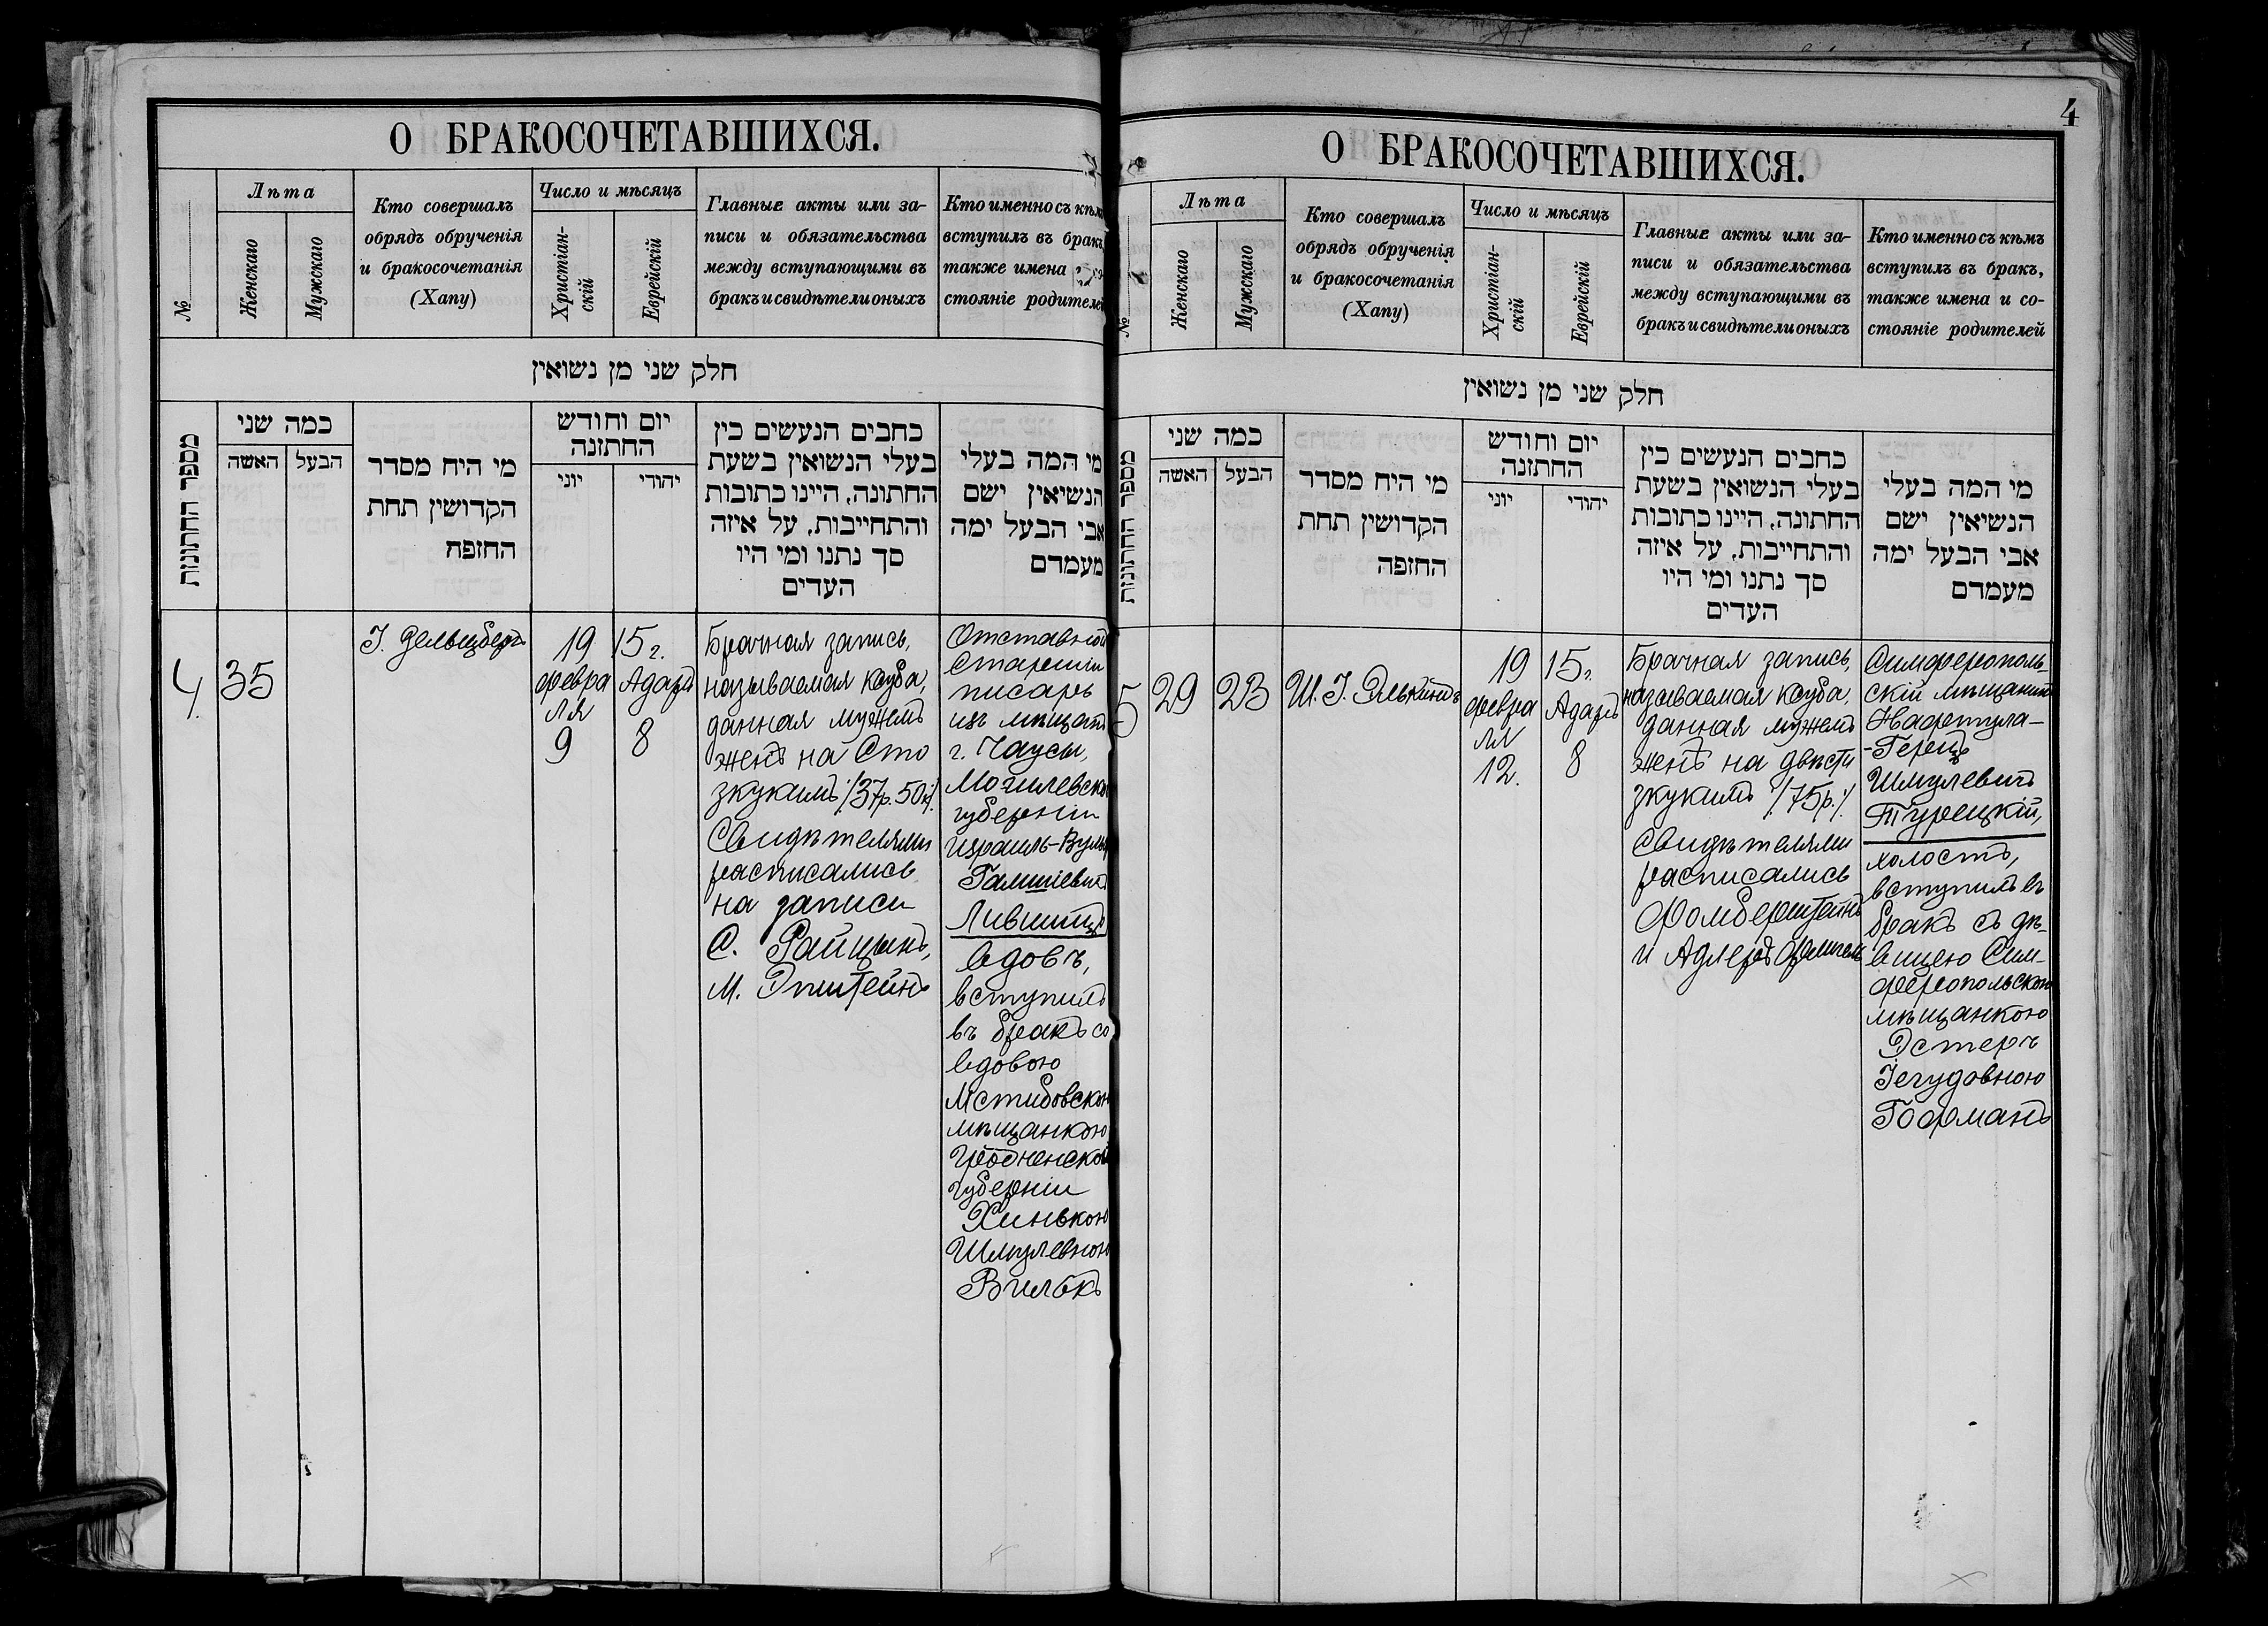 О БРАКОСОЧЕТАВШИХСЯ.
№
Лѣта
Женскаго
Мужскаго
Кто совершалъ
обрядъ обрученія
и бракосочетанія
(Хапу)
Число и мѣсяцъ
Христіан-
скій
Еврейскій
Главные акты или за-
писи и обязательства
между вступающими въ
бракъ и свидѣтели оныхъ
Кто именно съ кѣмъ
вступилъ въ бракъ,
также имена
стояніе родителей
חלק שני מן נשואין
מספר החתונות
כמה שני
האשה
הבעל
מי היח מסדר
הקדושין תחת
החזפח
יום וחודש
החתזנה
יוני
יהודי
כחבים הנעשים כין
בעלי הנשואין בשעת
החתונה, היינו כתובות
והתחייבות, על איזה
סך נתנו ומי היו
העדים
מי המה בעלי
הנשיאין ישם
אבי הבעל ימה
מעמדם
4.
35
І.
19
февра
ля
9
15 г.
Адаръ
8
Брачная запись,
называемая
данная мужемъ
женѣ на Сто
зкукимъ /37р. 50к/.
Свидѣтелями
расписались
на записи
С. Райцынъ,
М. Эпштейнъ
Отставной
Старшій
писарь
изъ мѣщанъ
г. Чаусы,
Могилевской
губерніи
Израиль-Вульфъ
Лившицъ
вдовъ,
вступилъ
въ бракъ со
вдовою
Мстибовскою
мѣщанкою
Гродненской
губерніи
Хинькою
Шмулевною
Вилькъ
4
О БРАКОСОЧЕТАВШИХСЯ.
№
Лѣта
Женскаго
Мужскаго
Кто совершалъ
обрядъ обрученія
и бракосочетанія
(Хапу)
Число и мѣсяцъ
Христіан-
скій
Еврейскій
Главные акты или за-
писи и обязательства
между вступающими въ
бракъ и свидѣтели оныхъ
Кто именно съ кѣмъ
вступилъ въ бракъ,
также имена и со-
стояніе родителей
חלק שני מן נשואין
מספר החתונות
כמה שני
האשה
הבעל
מי היח מסדר
הקדושין תחת
החזפה
יום וחודש
החתזנה
יוני
יהודי
כחבים הנעשים כין
בעלי הנשואין בשעת
החתונה, היינו כתובות
והתחייבות, על איזה
סך נתנו ומי היו
העדים
מי המה בעלי
הנשיאין ישם
אבי הבעל ימה
מעמדם
5
29
23
Ш. І. Элькиндъ
19
февра
ля
12.
15 г.
Адаръ
8
Брачная запись,
называемая
данная мужемъ
женѣ на двѣсти
зкукимъ /75р./.
Свидѣтелями
расписались
Фомберштейнъ
и Адлеръ
Симферополь-
скій мѣщанинъ
-Герцъ
Шмулевичъ
Турецкій,
холостъ,
вступилъ въ
бракъ съ дѣ-
вицею Сим-
феропольскою
мѣщанкою
Эстеръ
Іегудовною
Гофманъ